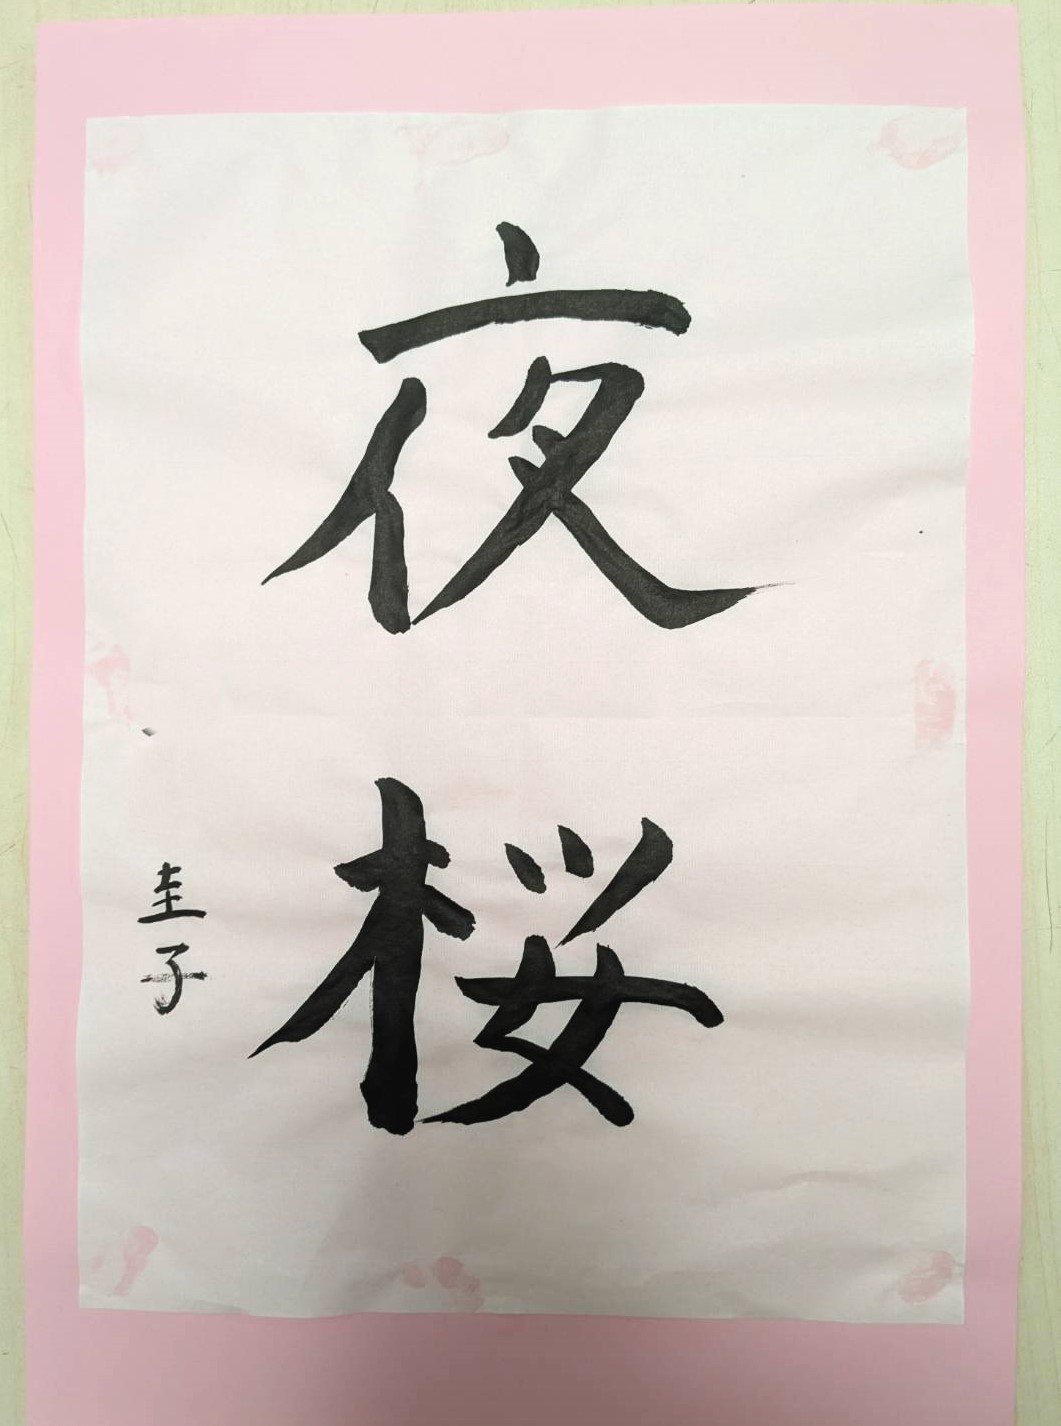 夜桜
圭子